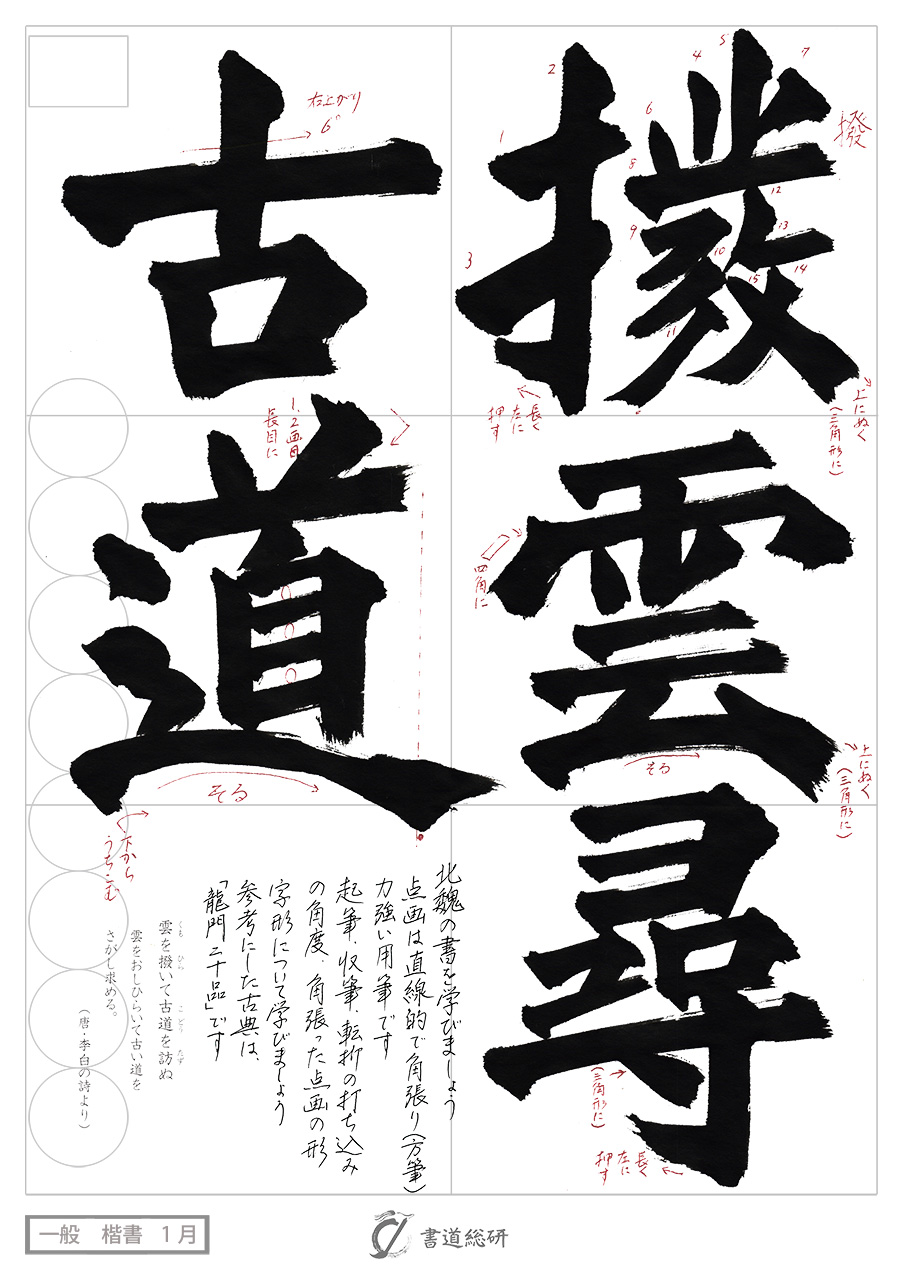 撥雲尋
古道
撥
1
2
3
4
5
6
7
8
9
10
11
12
13
14
15
右上がり
6°
上にぬく
(三角形に)
長く
左に
押す
1.2画目
長目に
四角に
上にぬく
(三角形に)
そる
そる
下から
うちこむ
(三角形に)
長く
左に
押す
北魏の書を学びましょう
点画は直線的で角張り(方筆)
力強い用筆です
起筆、収筆、転折の打ち込み
の角度、角張った点画の形
字形について学びましょう
参考にした古典は、
「龍門二十品」です
雲を撥いて古道を訪ぬ
くも ひら こどう たず
雲をおしひらいて古い道を
さがし求める。
(唐・李白の詩より)
一般 楷書 1月
書道総研